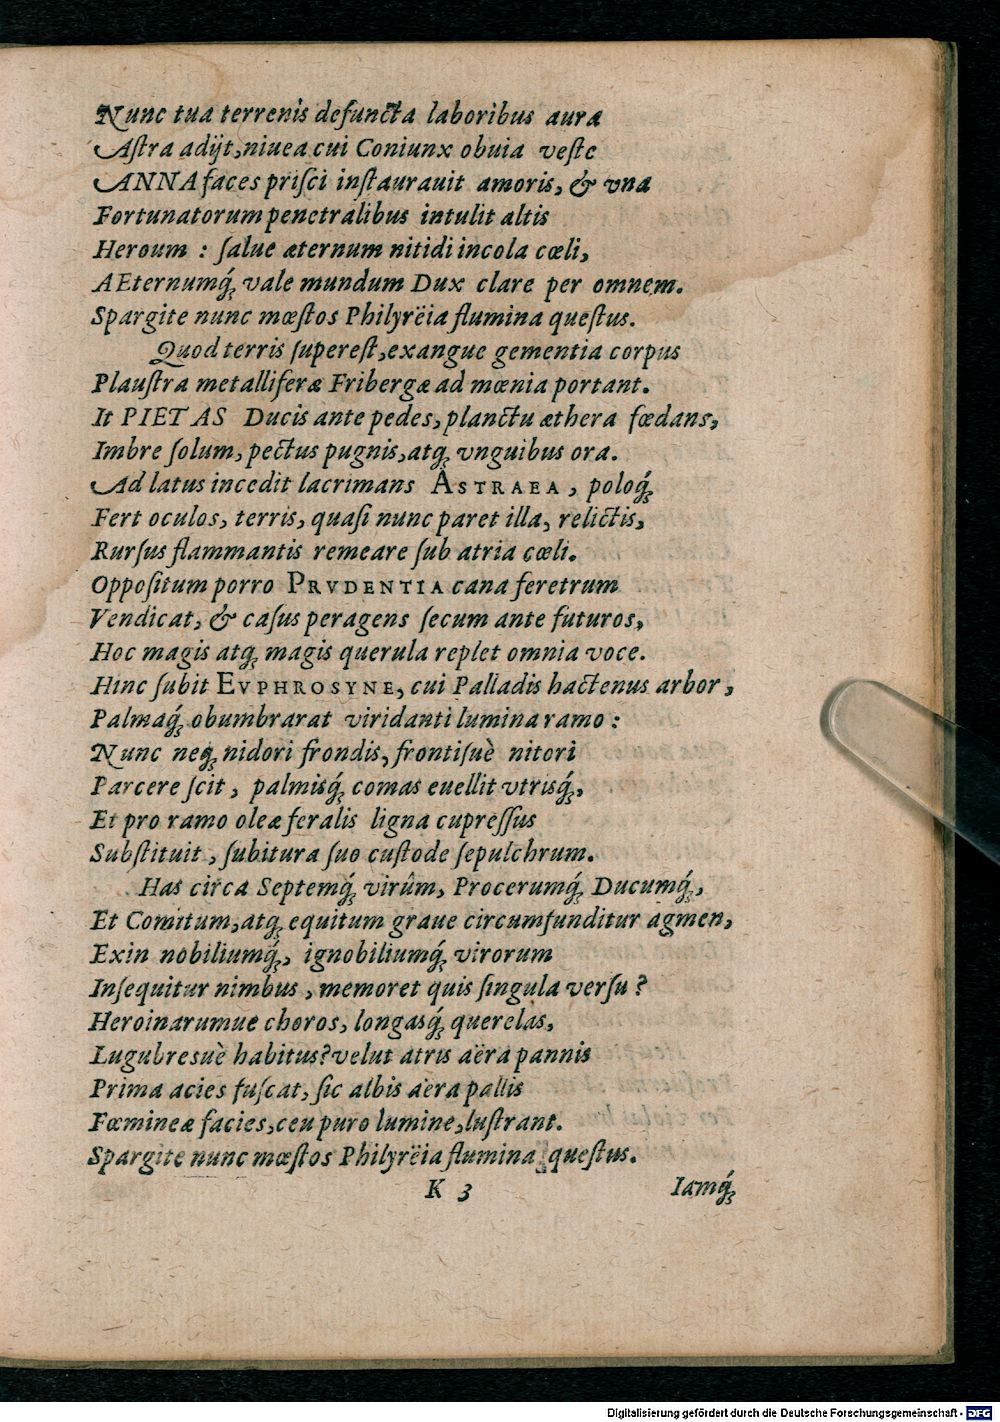 Nunc tua terrenis defuncta laboribus auræ
Aſtra adijt, niuea cui Coniunx obuia veſte
ANNA faces priſci inſtaurauit amoris, & vna
Fortunatorum penetralibus intulit altis
Heroum : ſalue æternum nitidi incola cœli,
AEternumq́ꝫ vale mundum Dux clare per omnem.
Spargite nunc mœſtos Philyrëia flumina queſtus.
Quod terris ſupereſt, exangue gementia corpus
Plauſtra metalliferæ Fribergæ ad mœnia portant.
It PIETAS Ducis ante pedes, planctu æthera fœdans,
Imbre ſolum, pectus pugnis, atqꝫ vnguibus ora.
Ad latus incedit lacrimans ASTRAEA, poloq́ꝫ
Fert oculos, terris, quaſi nunc paret illa, relictis,
Rurſus flammantis remeare ſub atria cœli.
Oppoſitum porro PRVDENTIA cana feretrum
Vendicat, & caſus peragens ſecum ante futuros,
Hoc magis atqꝫ magis querula replet omnia voce.
Hinc ſubit EVPHROSYNE, cui Palladis hactenus arbor,
Palmaq́ꝫ obumbrarat viridanti lumina ramo :
Nunc neqꝫ nidori frondis, frontiſuè nitori
Parcere ſcit, palmisq́ꝫ comas euellit vtrisq́ꝫ,
Et pro ramo oleæ feralis ligna cupreſſus
Subſtituit, ſubitura ſuo cuſtode ſepulchrum.
Has circa Septemq́ꝫ virûm, Procerumq́ꝫ Ducumq́ꝫ,
Et Comitum, atqꝫ equitum graue circumfunditur agmen,
Exin nobiliumq́ꝫ, ignobiliumq́ꝫ virorum
Inſequitur nimbus, memoret quis ſingula verſu ?
Heroinarumue choros, longasq́ꝫ querelas,
Lugubresuè habitus? velut atris aëra pannis
Prima acies fuſcat, ſic albis aëra pallis
Fœmineæ facies, ceu puro lumine, luſtrant.
Spargite nunc mœſtos Philyrëia flumina queſtus.
K 3 Iamq́ꝫ
Digitalisierung gefördert durch die Deutsche Forschungsgemeinschaft - DFG